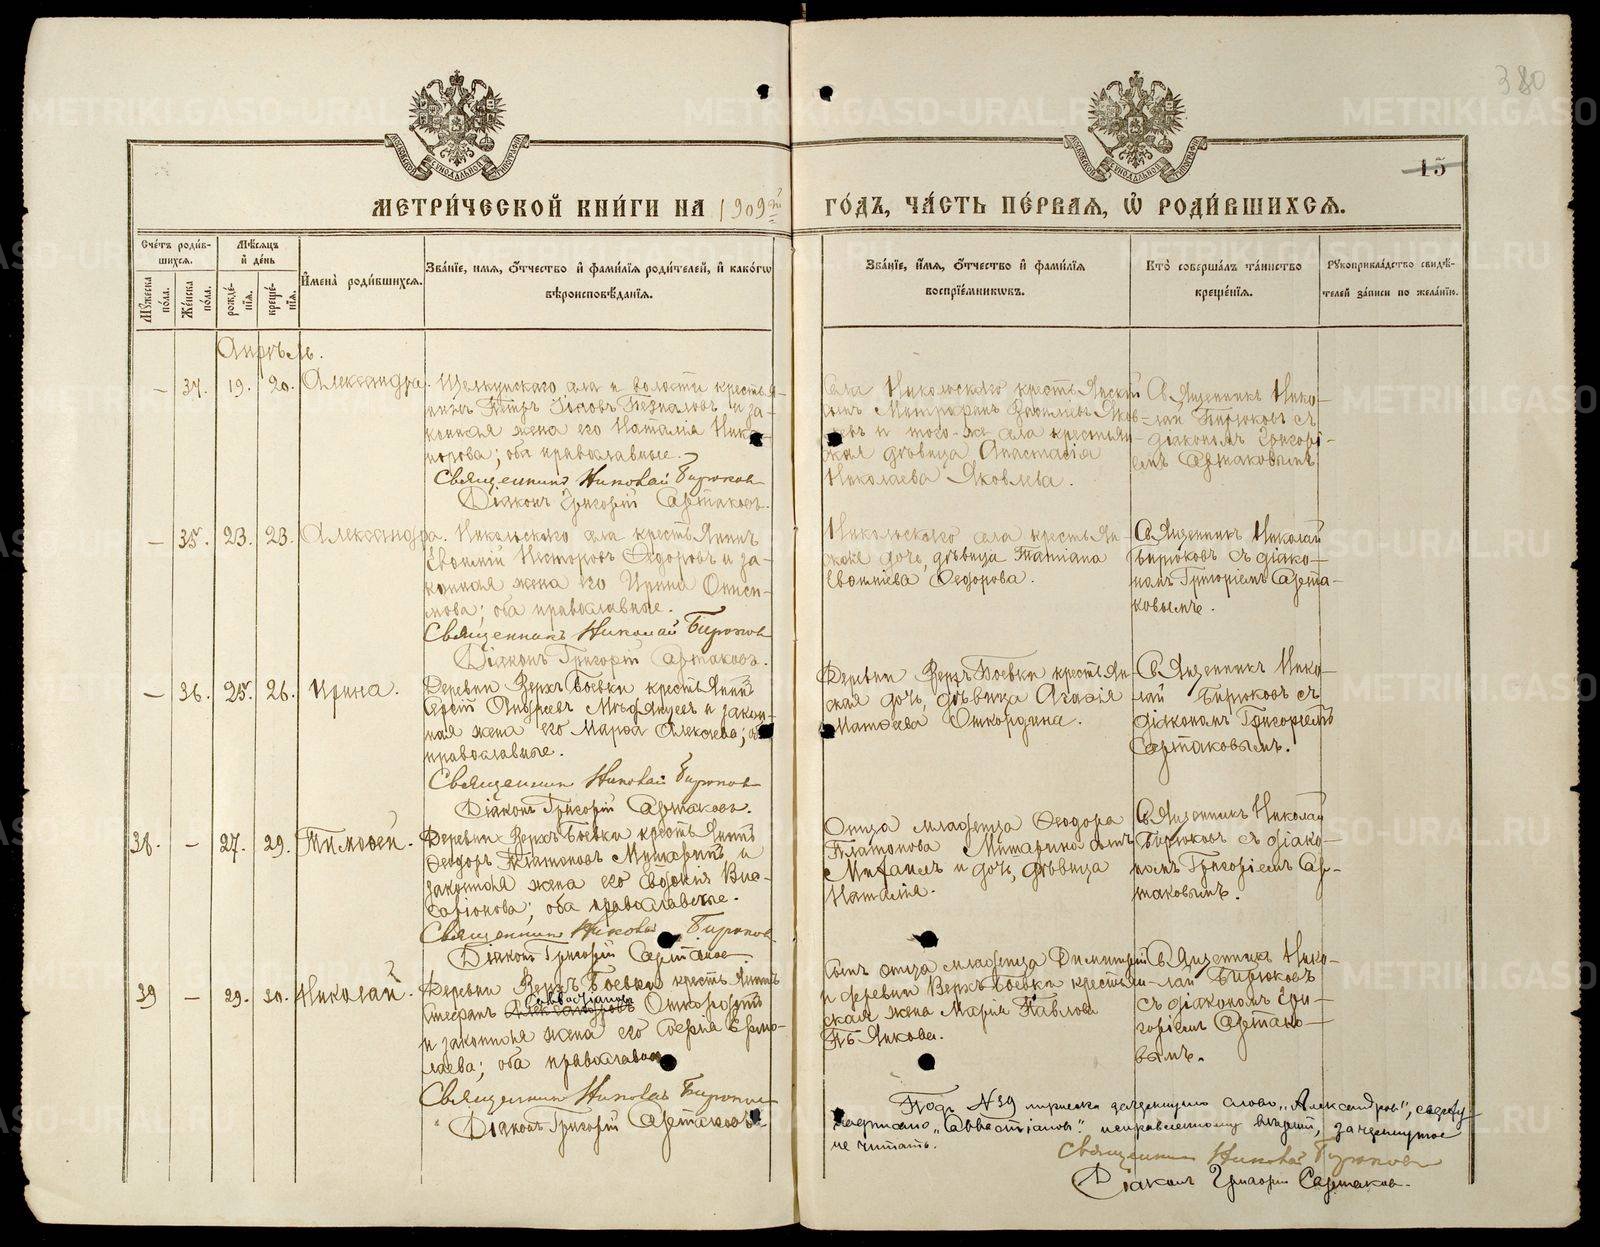 380
15
МЕТРИ́ЧЕСКОЙ КНИ́ГИ НА 1909й ГО́ДЪ, ЧА́СТЬ ПЕ́РВАЯ, Ѡ РОДИ́ВШИХСЯ.
Сче́тъ роди́в-
шихся.
Мѣ́сяцъ
и҆ де́нь
Мꙋ́жеска
по́ла.
Же́нска
по́ла.
рожде́-
нїя.
креще́-
нїя.
И҆мена̀ роди́вшихся.
Зва́нїе, имя, ѻ҆́тчество и҆ фами́лїя роди́телей, и҆ како́гѡ
вѣроисповѣ́данїя.
Зва́нїе, и҆́мя, ѻ҆́тчество и҆ фами́лїя
воспрїе́мникѡвъ.
Кто̀ соверша́лъ та́инство
креще́нїя.
Рꙋкоприкла́дство свидѣ́-
телей за́писи по жела́нїю.
Апрѣль.
– 34. 19. 20. Александра.
Щелкунскаго села и волости крестья-
нинъ Петръ
и за-
конная жена его Наталія Ника-
норова; оба православные.
Священникъ Николай Бирюков
Діаконъ Григорій Сартаковъ.
села Никольскаго крестьянскій
сынъ Митрофанъ Яков-
левъ и того-же села крестьян-
ская дѣвица Анастасія
Николаева Яковлева.
Священникъ Нико-
лай Бирюковъ съ
діакономъ Григорі-
емъ Сартаковымъ
– 35. 23. 23. Александра.
Никольскаго села крестьянинъ
Евѳимій Несторовъ Ѳедоровъ и за-
конная жена его Ирина Ониси-
мова; оба православные.
Священникъ Николай Бирюков
Діаконъ Григорій Сартаковъ.
Никольскаго села крестьян-
ская дочь, дѣвица Татіана
Евѳиміева Ѳедорова.
Священникъ Николай
Бирюковъ съ діако-
номъ Григоріемъ Сарта-
ковымъ.
– 36. 25. 26. Ирина.
Деревни Верхъ Боевки крестьянинъ
Сергій Андреевъ и закон-
ная жена его Марѳа Алексіева; оба
православные.
Священникъ Николай Бирюков
Діаконъ Григорій Сартаковъ.
Деревни Верхъ Боевки крестьян-
ская дочь, дѣвица Агафія
Матѳеева
Священникъ Нико-
лай Бирюковъ съ
діакономъ Григоріемъ
Сартаковымъ.
38. – 27. 29. Тимоѳей.
Деревни Верхъ Боевки крестьянинъ
Ѳеодоръ Платоновъ и
законная жена его Евдокія Вис-
саріонова; оба православные.
Священникъ Николай Бирюков
Діаконъ Григорій Сартаков.
Отца младенца Ѳеодора
Платонова сынъ
Михаилъ и дочь, дѣвица
Наталія.
Священникъ Николай
Бирюковъ съ діако-
номъ Григоріемъ Сар-
таковымъ.
39 – 29. 30. Николай.
Деревни Верхъ Боевки крестьянинъ
Савостіанов
Стефанъ Александровъ
и законная жена его Софія Ермо-
лаева; оба православные
Священникъ Николай Бирюков
Діаконъ Григорій Сартаковъ
сынъ отца младенца Димитрій
и деревни Верхъ Боевки крестьян-
ская жена Марія Павлова
Пьянкова.
Священникъ Нико-
лай Бирюковъ
съ діакономъ Гри-
горіемъ Сартако-
вымъ.
Подъ №39 зачеркнуто слово „Александров",
надписано „Савостіанов" исправленному вѣрить, зачеркнутое
не читать.
Священникъ Николай Бирюков
Діаконъ Григорій Сартаков.
METRIKI.GASO-URAL.RU